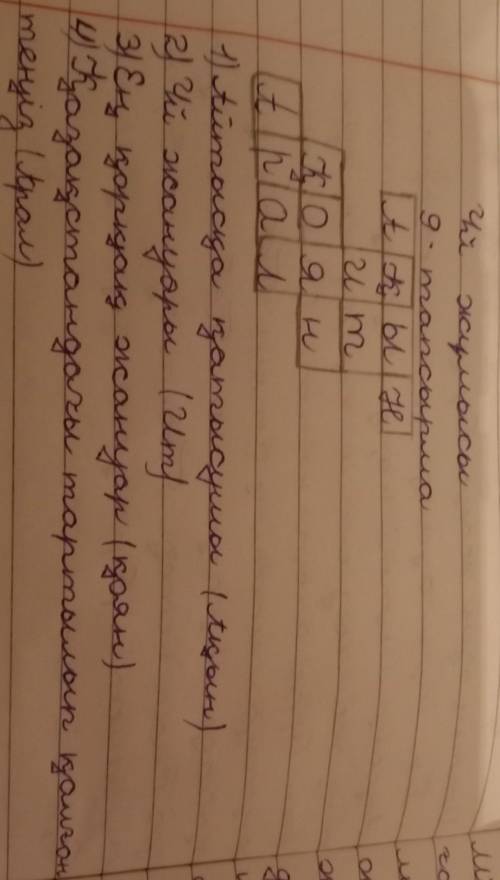 Үй жұмысы
9-тапсырма
А Қ Ы Н
И Т
Қ О Я Н
А Р А Л
1) Айтысқа қатысушы (Ақын)
2) Үй жануары (Ит)
3) Ең қорқақ жануар (қоян)
4) Қазақстандағы тартылып қалған
теңіз (Арал)